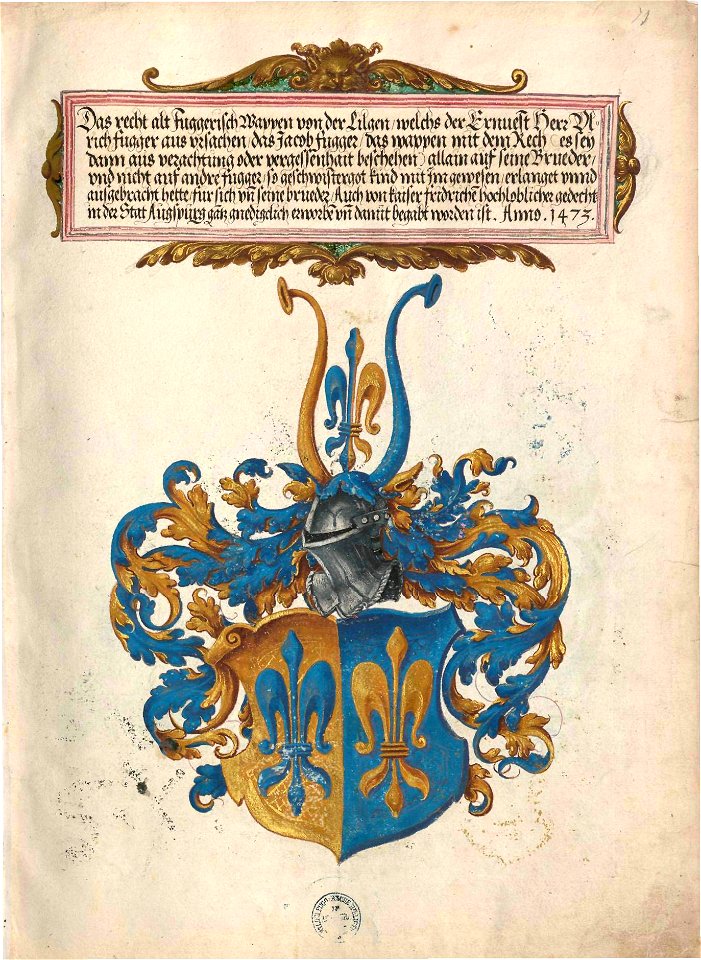 Das recht alt Fuggerisch Wappen von der Lilgen / welchs der Ernuest Herr Vl-
rich Fugger aus vrsachen / das Jacob Fugger / das wappen mit dem Rech (es sey
dann aus verachtung oder vergessenhait beschehen) allain auf seine Brueder /
vnd nicht auf andre Fugger / so geschwistergot kind mit Jm gewesen / erlanget vnnd
aufgebracht hette / für sich vñ seine brueder / Auch von kaiser fridrichē hochloblicher gedecht
in der Stat Augspurg gātz gnediglich erworbē vñ damit begabt worden ist. Anno. 1473.
71